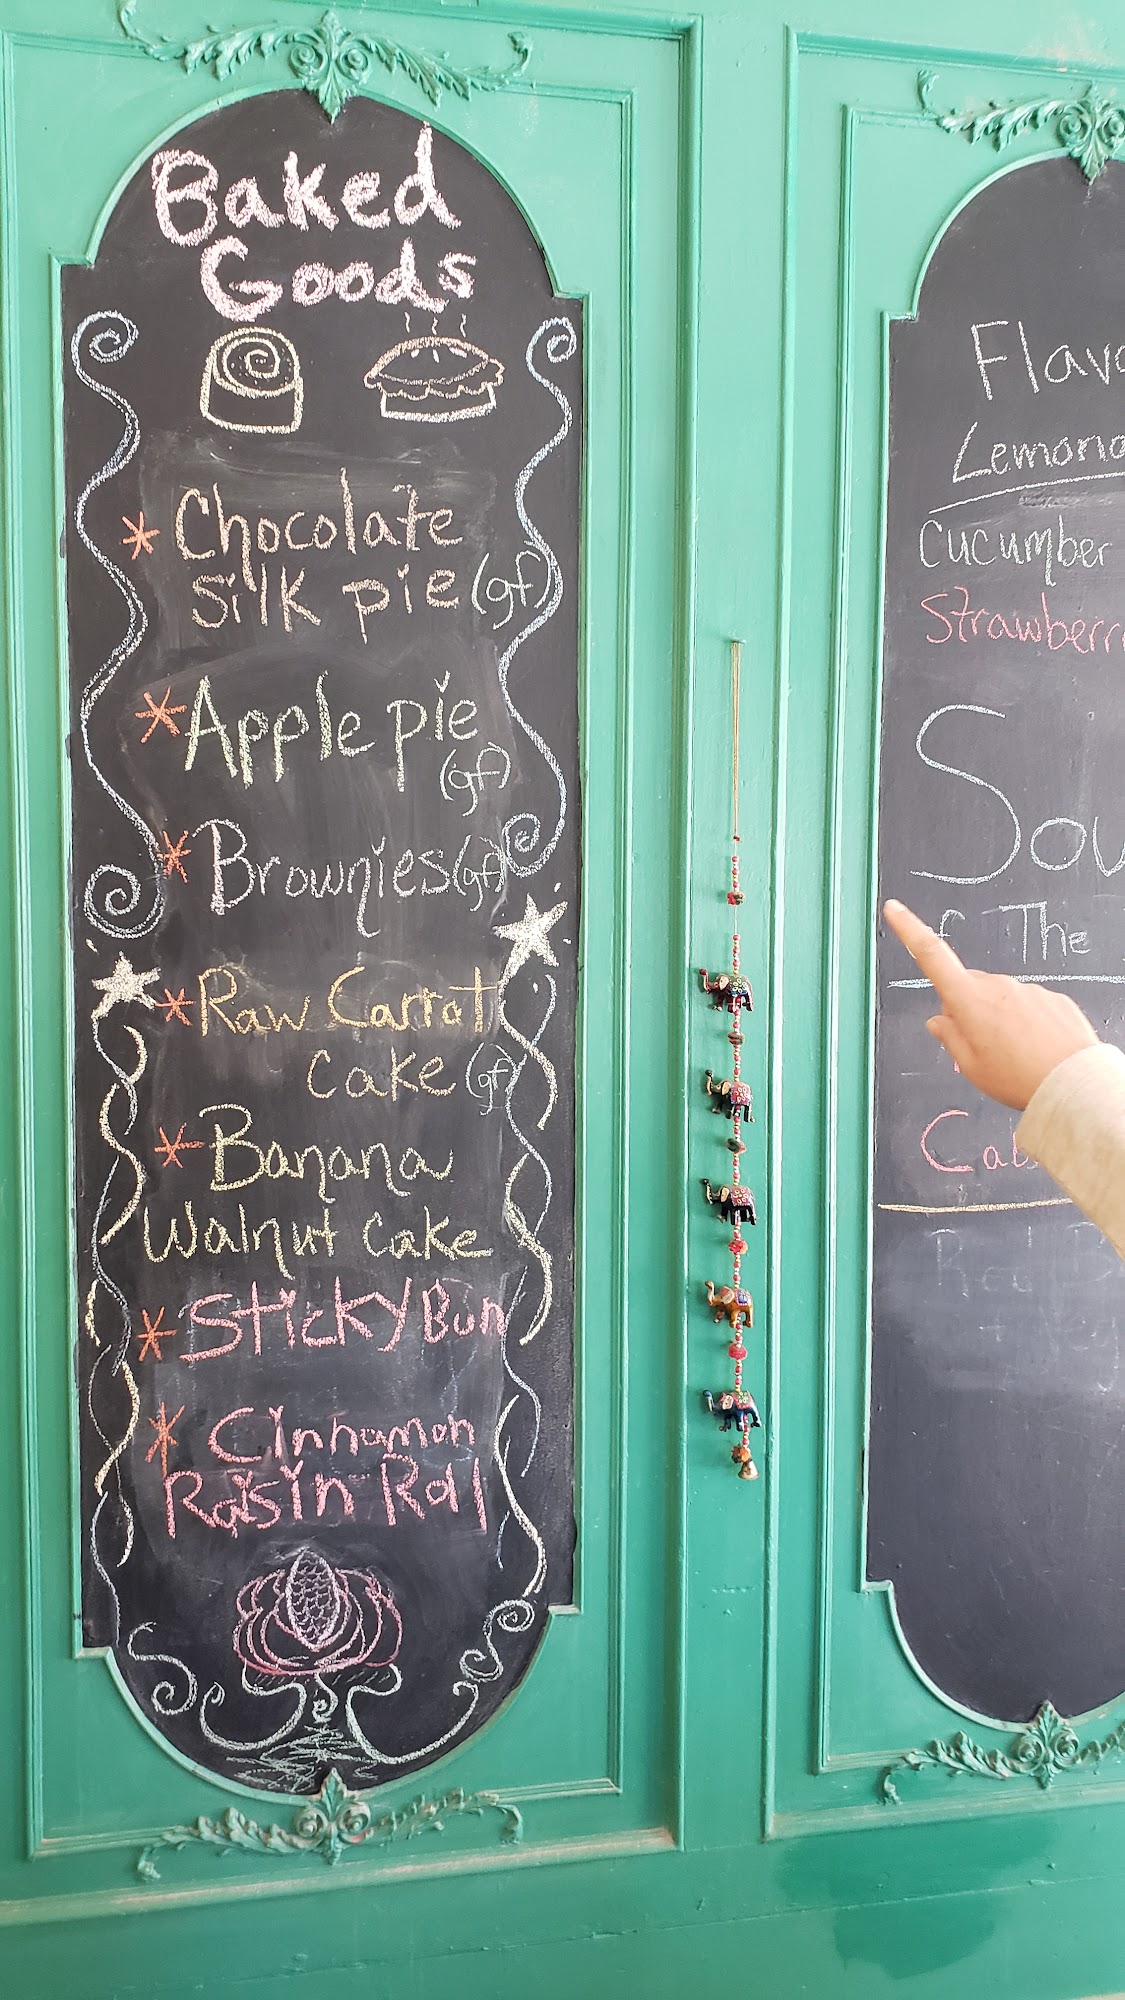 Baked
Goods
* Chocolate
silk pie (gf)
* Apple pie
(gf)
* Brownies (gf)
* Raw Carrot
Cake (gf)
* Banana
Walnut Cake
* Sticky Bun
* Cinnamon
Raisin Roll
Flavo
Lemona
Cucumber
Strawberr
Sou
of The
Cab